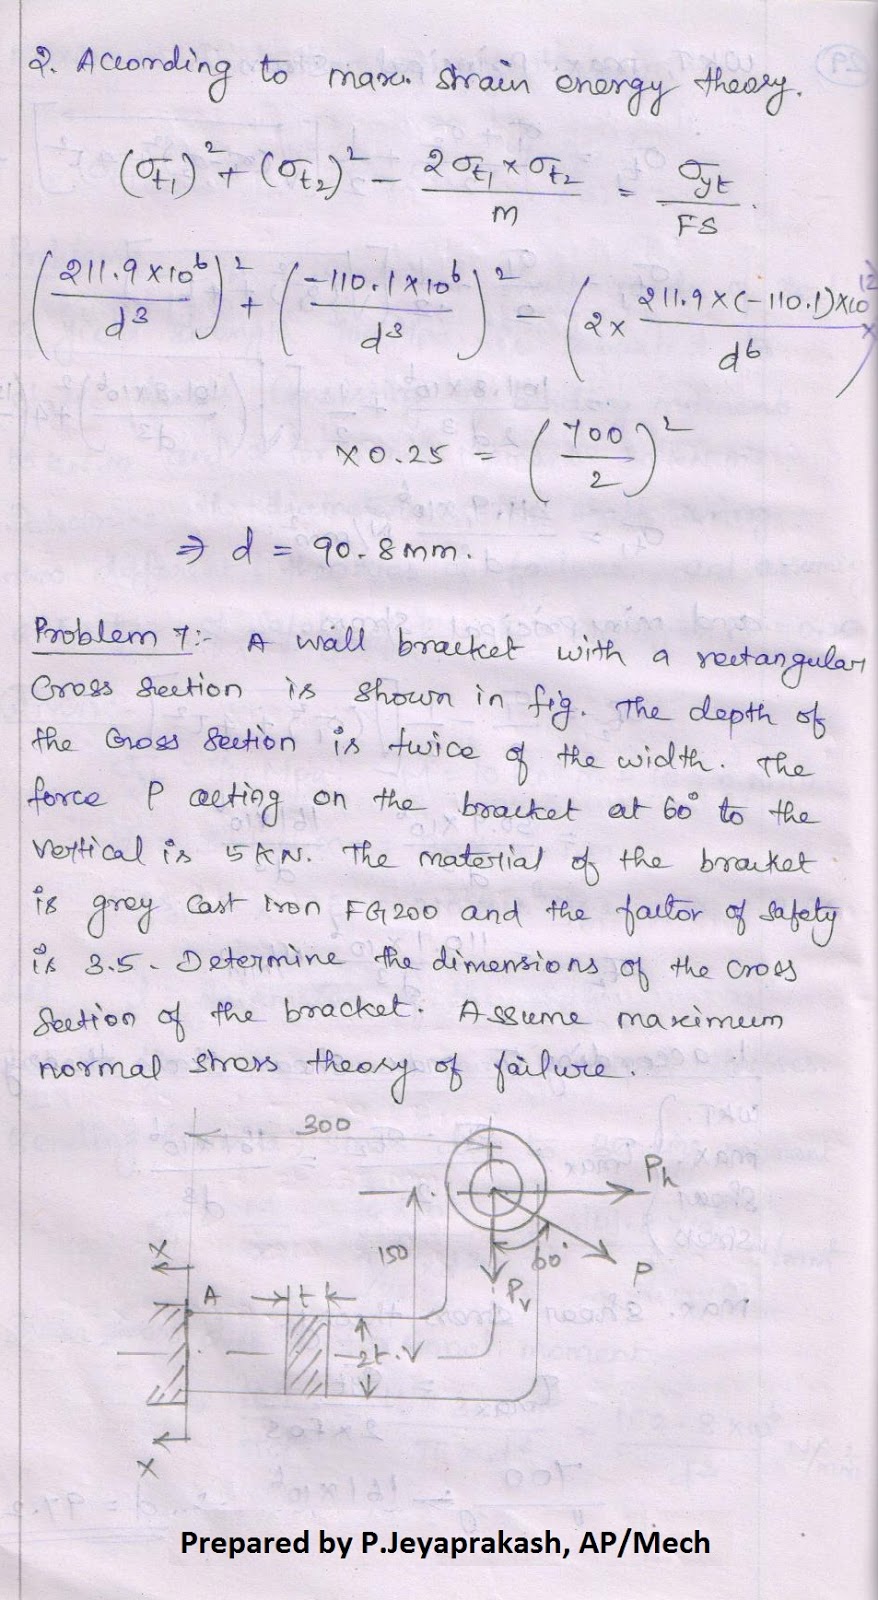 2. According to max. strain energy theory.
(σt1)² + (σt2)² - 2σt1 × σt2 / m = σyt / FS.
(211.9 × 10⁶ / d³)² + (-110.1 × 10⁶ / d³)² - (2 × 211.9 × (-110.1) × 10¹² / d⁶) ×
× 0.25 = (700 / 2)²
⇒ d = 90.8mm.
Problem 7:- A wall bracket with a rectangular
Cross Section is shown in fig. The depth of
the Cross Section is twice of the width. The
force P acting on the bracket at 60° to the
vertical is 5KN. The material of the bracket
is grey Cast Iron FG200 and the factor of safety
is 3.5. Determine the dimensions of the cross
Section of the bracket. Assume maximum
normal stress theory of failure.
300
Ph
150
60°
P
Pv
X
A
t
2t
X
Prepared by P.Jeyaprakash, AP/Mech